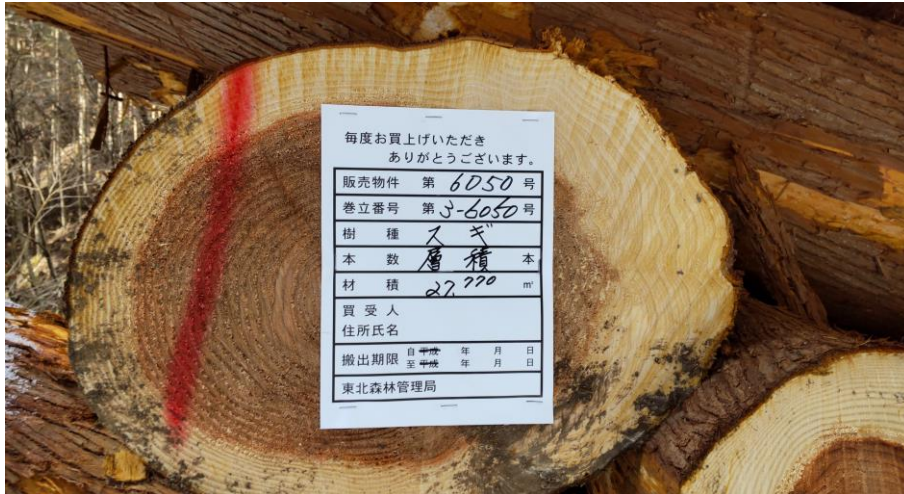 毎度お買上げいただき
ありがとうございます。
販売物件 第 6050 号
巻立番号 第 3-6050 号
樹種 スギ
本数 層積 本
材積 27.770 ㎥
買受人
住所氏名
搬出期限 自 平成 年 月 日
至 平成 年 月 日
東北森林管理局